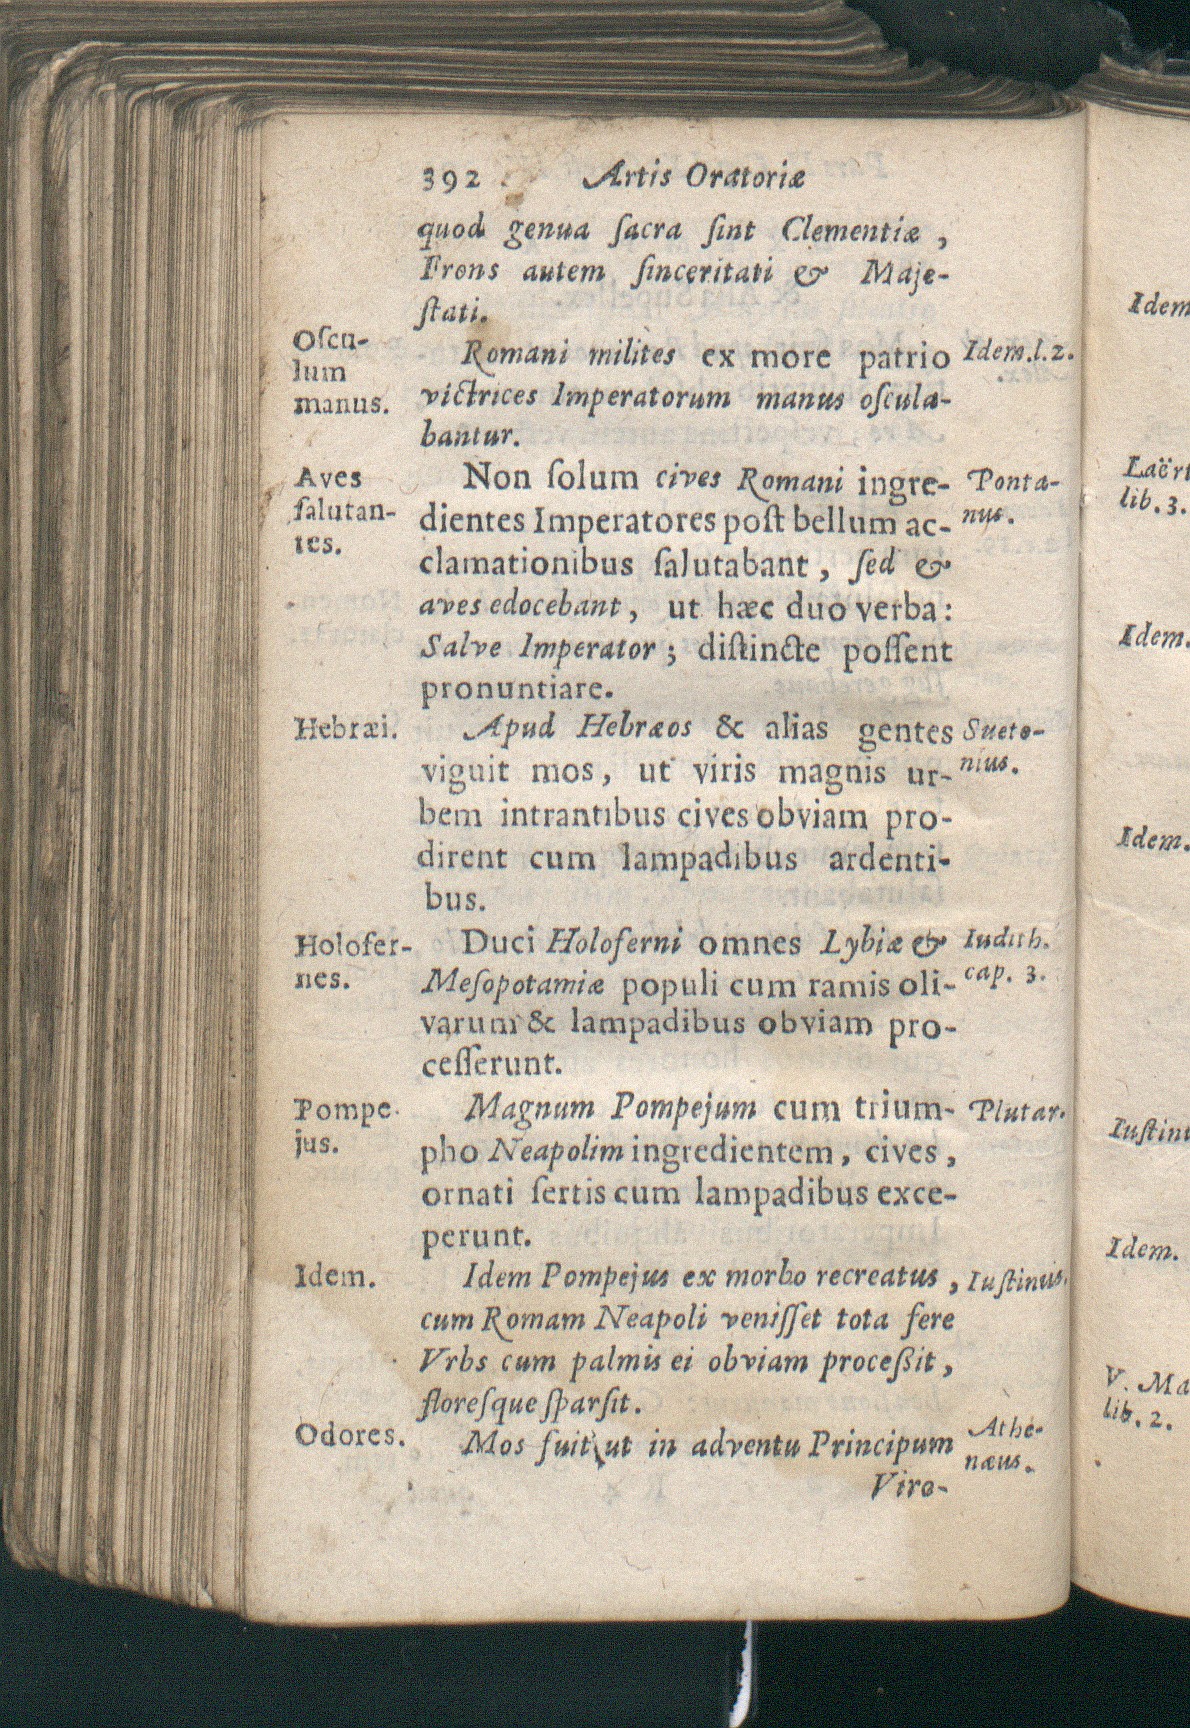 392 Artis Oratoriæ
quod genua ſacra ſint Clementiæ ,
Frons autem ſinceritati & Maje-
ſtati.
Oſcu-
lum
manus.
Romani milites ex more patrio
victrices Imperatorum manus oſcula-
bantur.
Idem.l.2.
Aves
ſalutan-
tes.
Non ſolum cives Romani ingre-
dientes Imperatores poſt bellum ac-
clamationibus ſalutabant , ſed &
aves edocebant , ut hæc duo verba:
Salve Imperator ; diſtincte poſſent
pronuntiare.
Ponta-
nus.
Hebræi.
Apud Hebræos & alias gentes
viguit mos, ut viris magnis ur-
bem intrantibus cives obviam pro-
dirent cum lampadibus ardenti-
bus.
Sueto-
nius.
Holofer-
nes.
Duci Holoferni omnes Lybiæ &
Meſopotamiæ populi cum ramis oli-
varum & lampadibus obviam pro-
ceſſerunt.
Iudith.
cap. 3.
Pompe-
jus.
Magnum Pompejum cum trium-
pho Neapolim ingredientem , cives ,
ornati ſertis cum lampadibus exce-
perunt.
Plutar.
Idem.
Idem Pompejus ex morbo recreatus ,
cum Romam Neapoli veniſſet tota fere
Vrbs cum palmis ei obviam proceßit ,
floreſque ſparſit.
Iuſtinus.
Odores.
Mos fuit ut in adventu Principum
Viro-
Athe-
næus.
Idem
Laërt
lib. 3.
Idem.
Idem.
Iuſtinu
Idem.
V. Ma
lib. 2.